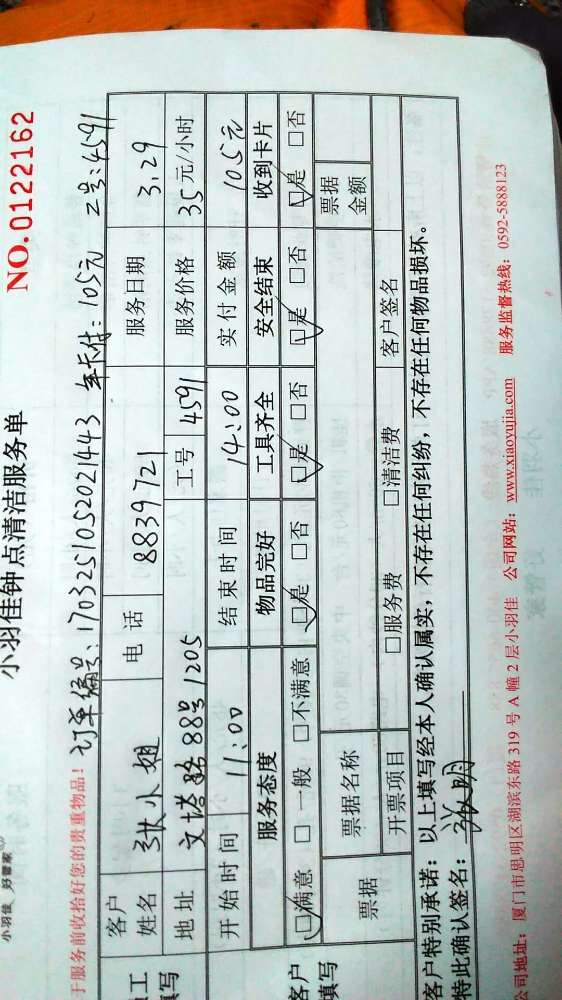 小羽佳 好管家
小羽佳钟点清洁服务单 NO.0122162
于服务前收拾好您的贵重物品! 订单编号:1703251052021443 年卡付:105元 工号:4591
客户姓名 张小姐 电话 8839721 服务日期 3.29
地址 文塔路88号1205 工号 4591 服务价格 35元/小时
开始时间 11:00 结束时间 14:00 实付金额 105元
服务态度 物品完好 工具齐全 安全结束 收到卡片
☑满意 □一般 □不满意 ☑是 □否 ☑是 □否 ☑是 □否 ☑是 □否
票据 票据名称 票据金额
开票项目 □服务费 □清洁费 客户签名
工
填写
客户
填写
客户特别承诺:以上填写经本人确认属实,不存在任何纠纷,不存在任何物品损坏。
特此确认签名:张明
公司地址:厦门市思明区湖滨东路319号A幢2层小羽佳 公司网站:www.xiaoyujia.com 服务监督热线:0592-5888123